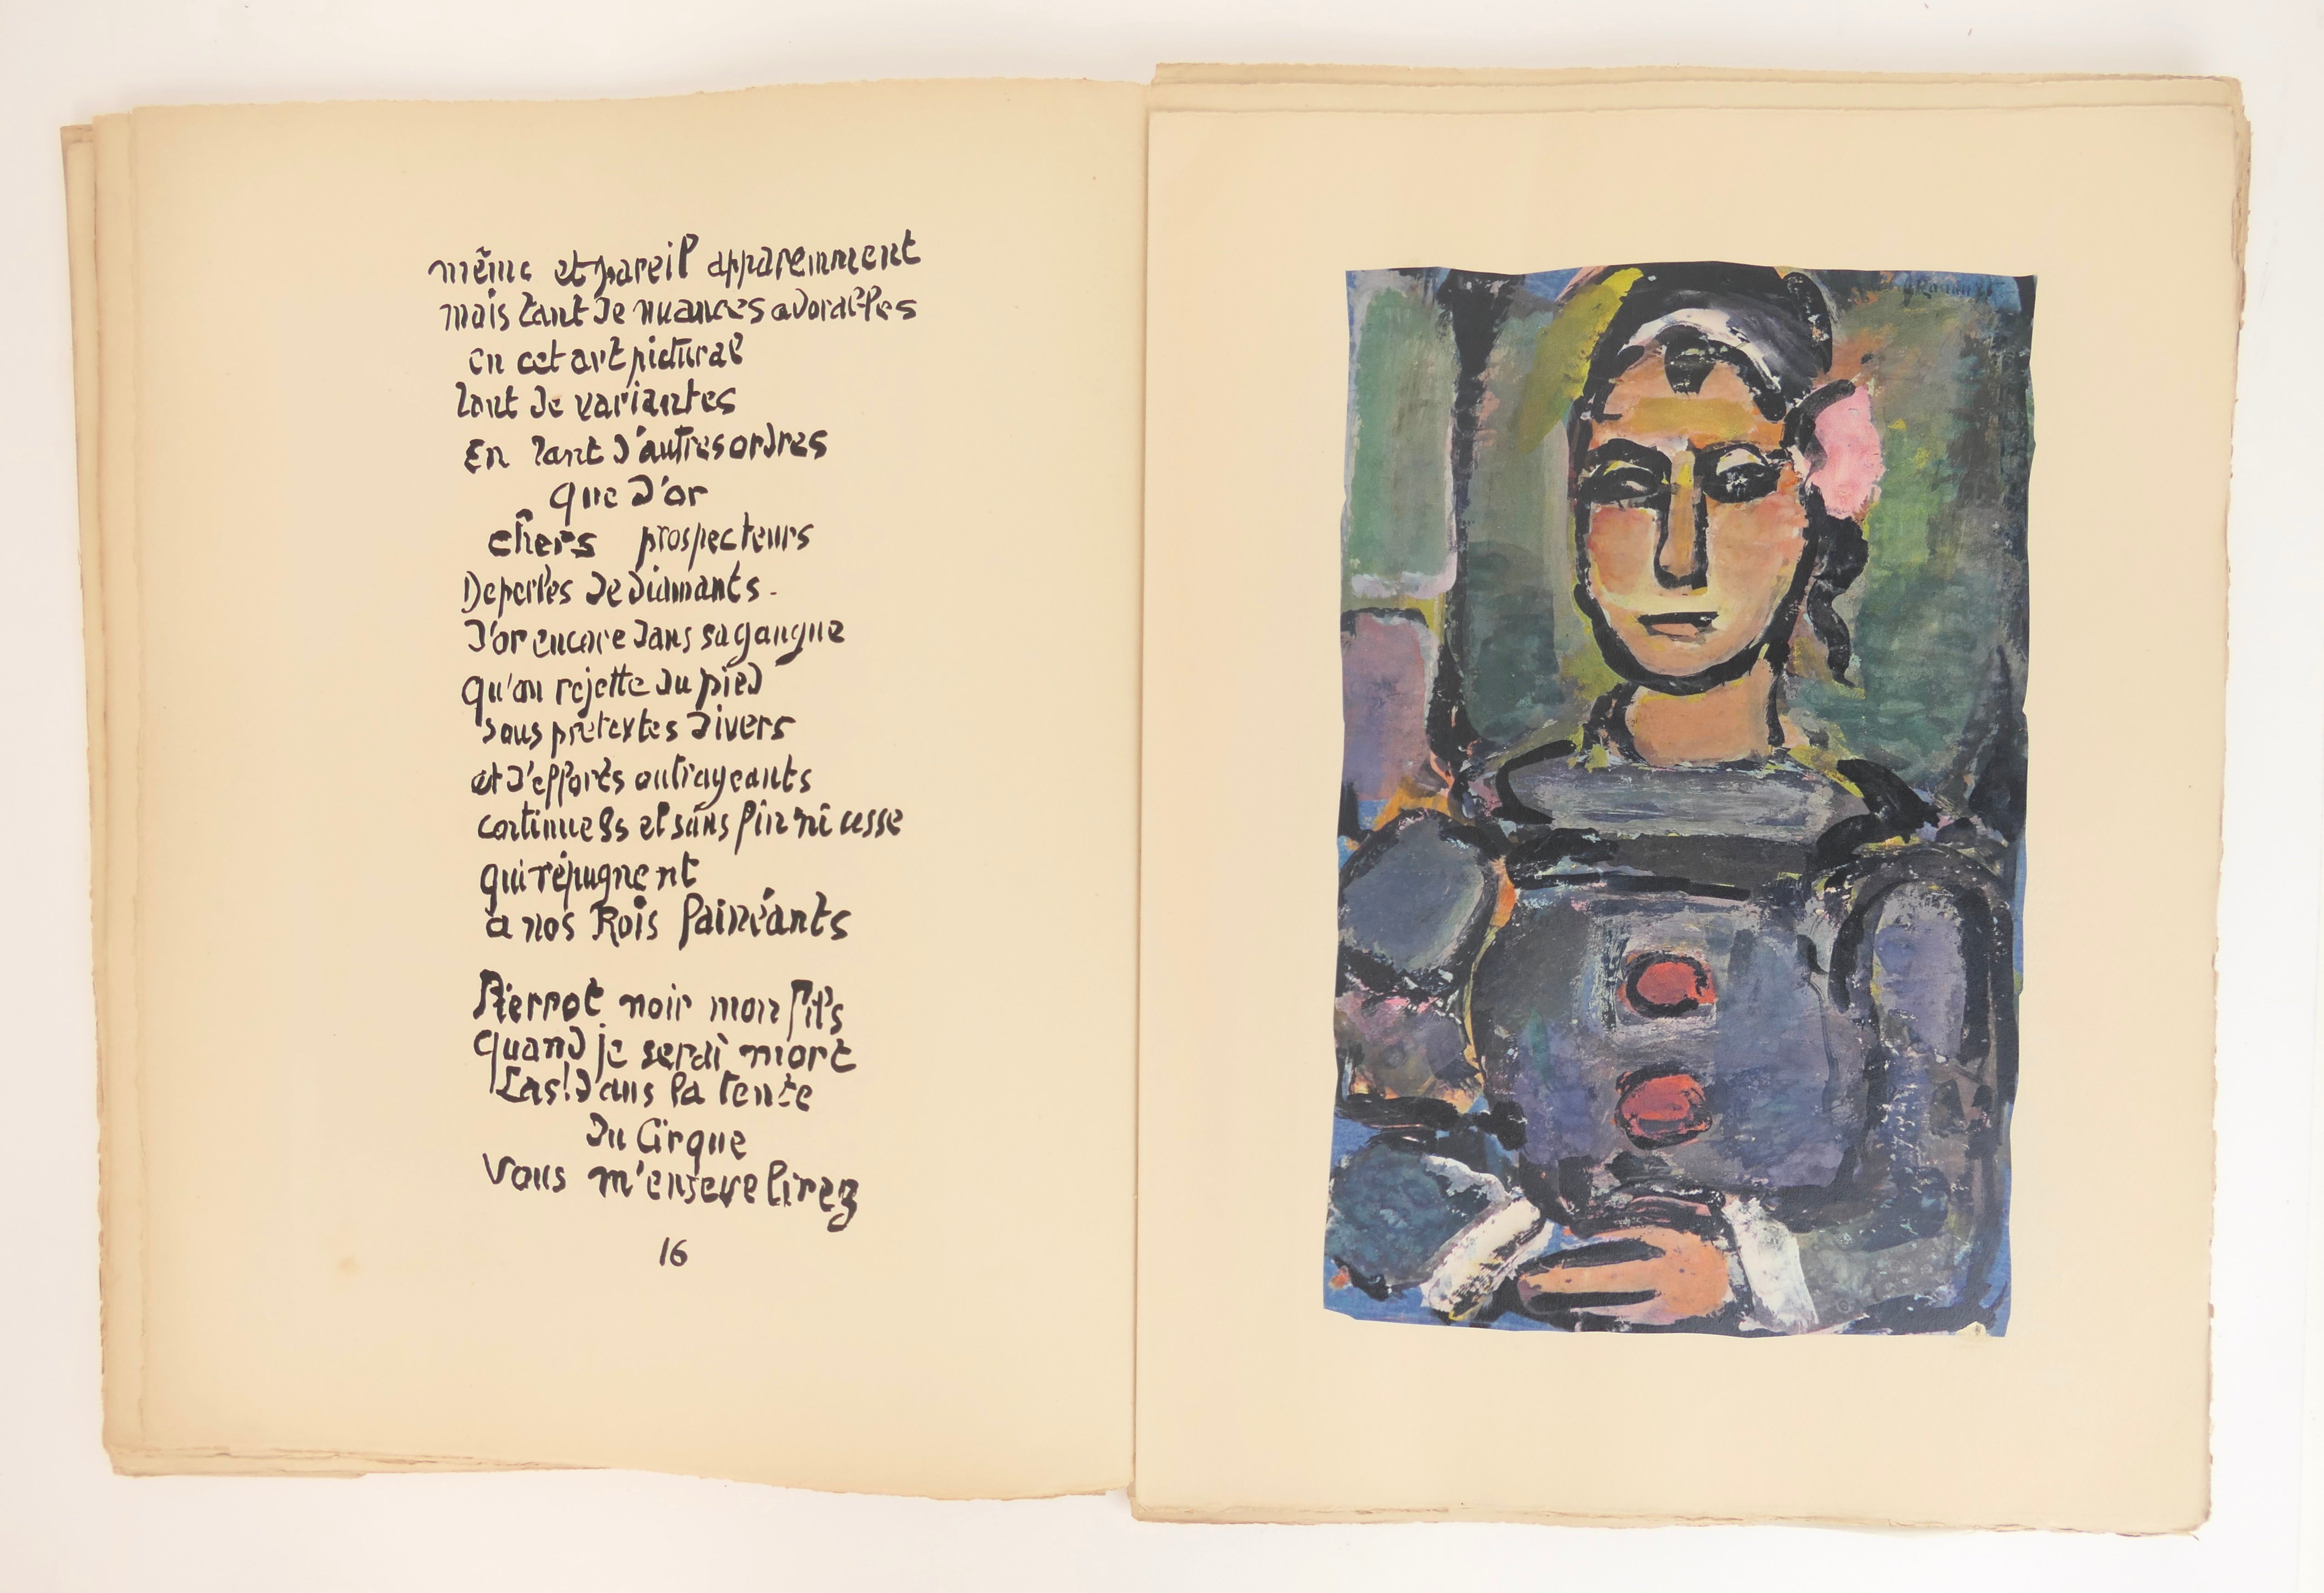 même et pareil apparemment
mais tant de nuances adorables
en cet art pictural
tant de variantes
En tant d'autres ordres
que d'or
chers prospecteurs
De perles de diamants -
d'or encore dans sa gangue
qu'on rejette du pied
sous prétextes divers
et d'efforts outrageants
continuels et sans fin ni cesse
qui répugnent
a nos Rois fainéants
Pierrot noir mon fils
quand je serai mort
Las! dans la tente
du Cirque
Vous m'ensevelirez
16
G Rouault